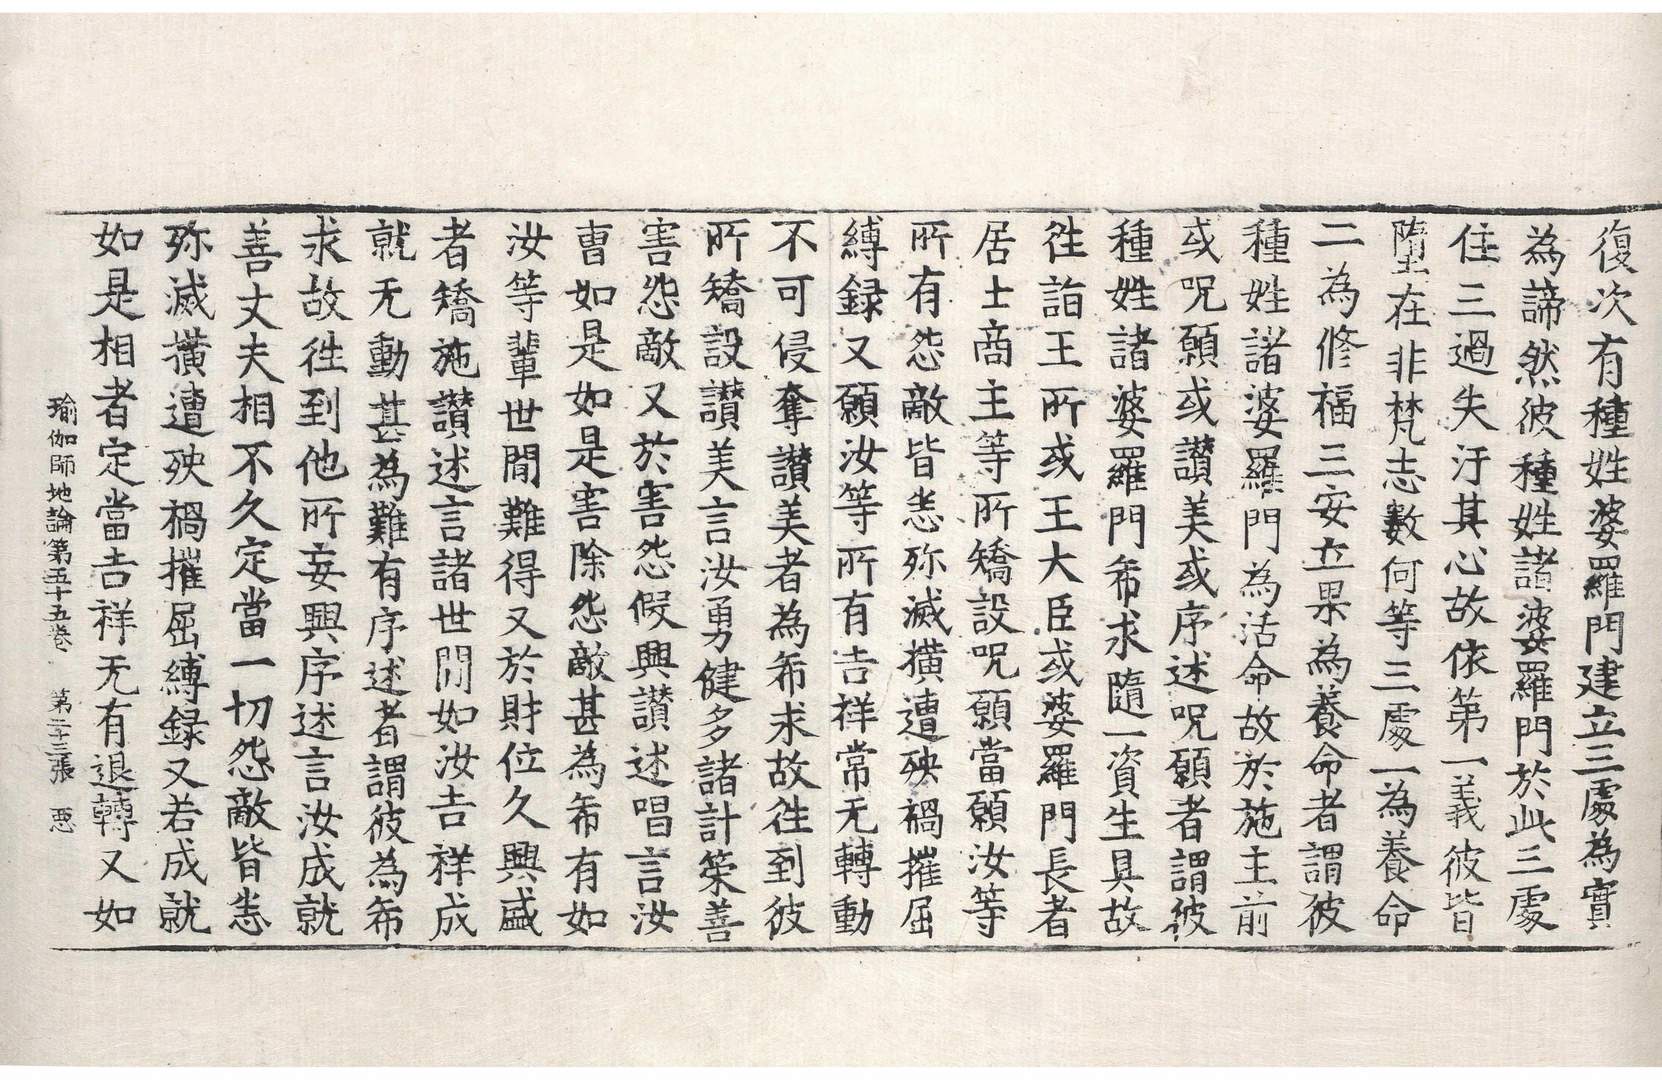 復次有種姓婆羅門建立三處為實
為諦然彼種姓諸婆羅門於此三處
住三過失汙其心故依第一義彼皆
墮在非梵志數何等三處一為養命
二為修福三安立果為養命者謂彼
種姓諸婆羅門為活命故於施主前
或呪願或讚美或序述呪願者謂彼
種姓諸婆羅門希求隨一資生具故
往詣王所或王大臣或婆羅門長者
居士商主等所矯設呪願當願汝等
所有怨敵皆悉殄滅撗遭殃禍摧屈
縛録又願汝等所有吉祥常无轉動
不可侵奪讚美者為希求故往到彼
所矯設讚美言汝勇健多諸計策善
害怨敵又於害怨假興讚述唱言汝
曹如是如是害除怨敵甚為希有如
汝等輩世間難得又於財位久興盛
者矯施讚述言諸世間如汝吉祥成
就无動甚為難有序述者謂彼為希
求故往到他所妄興序述言汝成就
善丈夫相不久定當一切怨敵皆悉
殄滅撗遭殃禍摧屈縛録又若成就
如是相者定當吉祥无有退轉又如
瑜伽師地論第五十五卷 第二十三張 惡